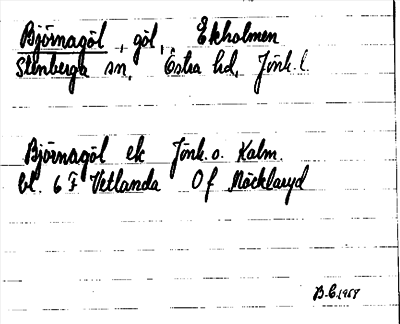 Björnagöl, göl, Ekholmen
Stenberga sn, Östra hd, Jönk. l.
Björnagöl ek Jönk. o. Kalm.
bl. 6 F Vetlanda Of Möcklaryd
B.C. 1957